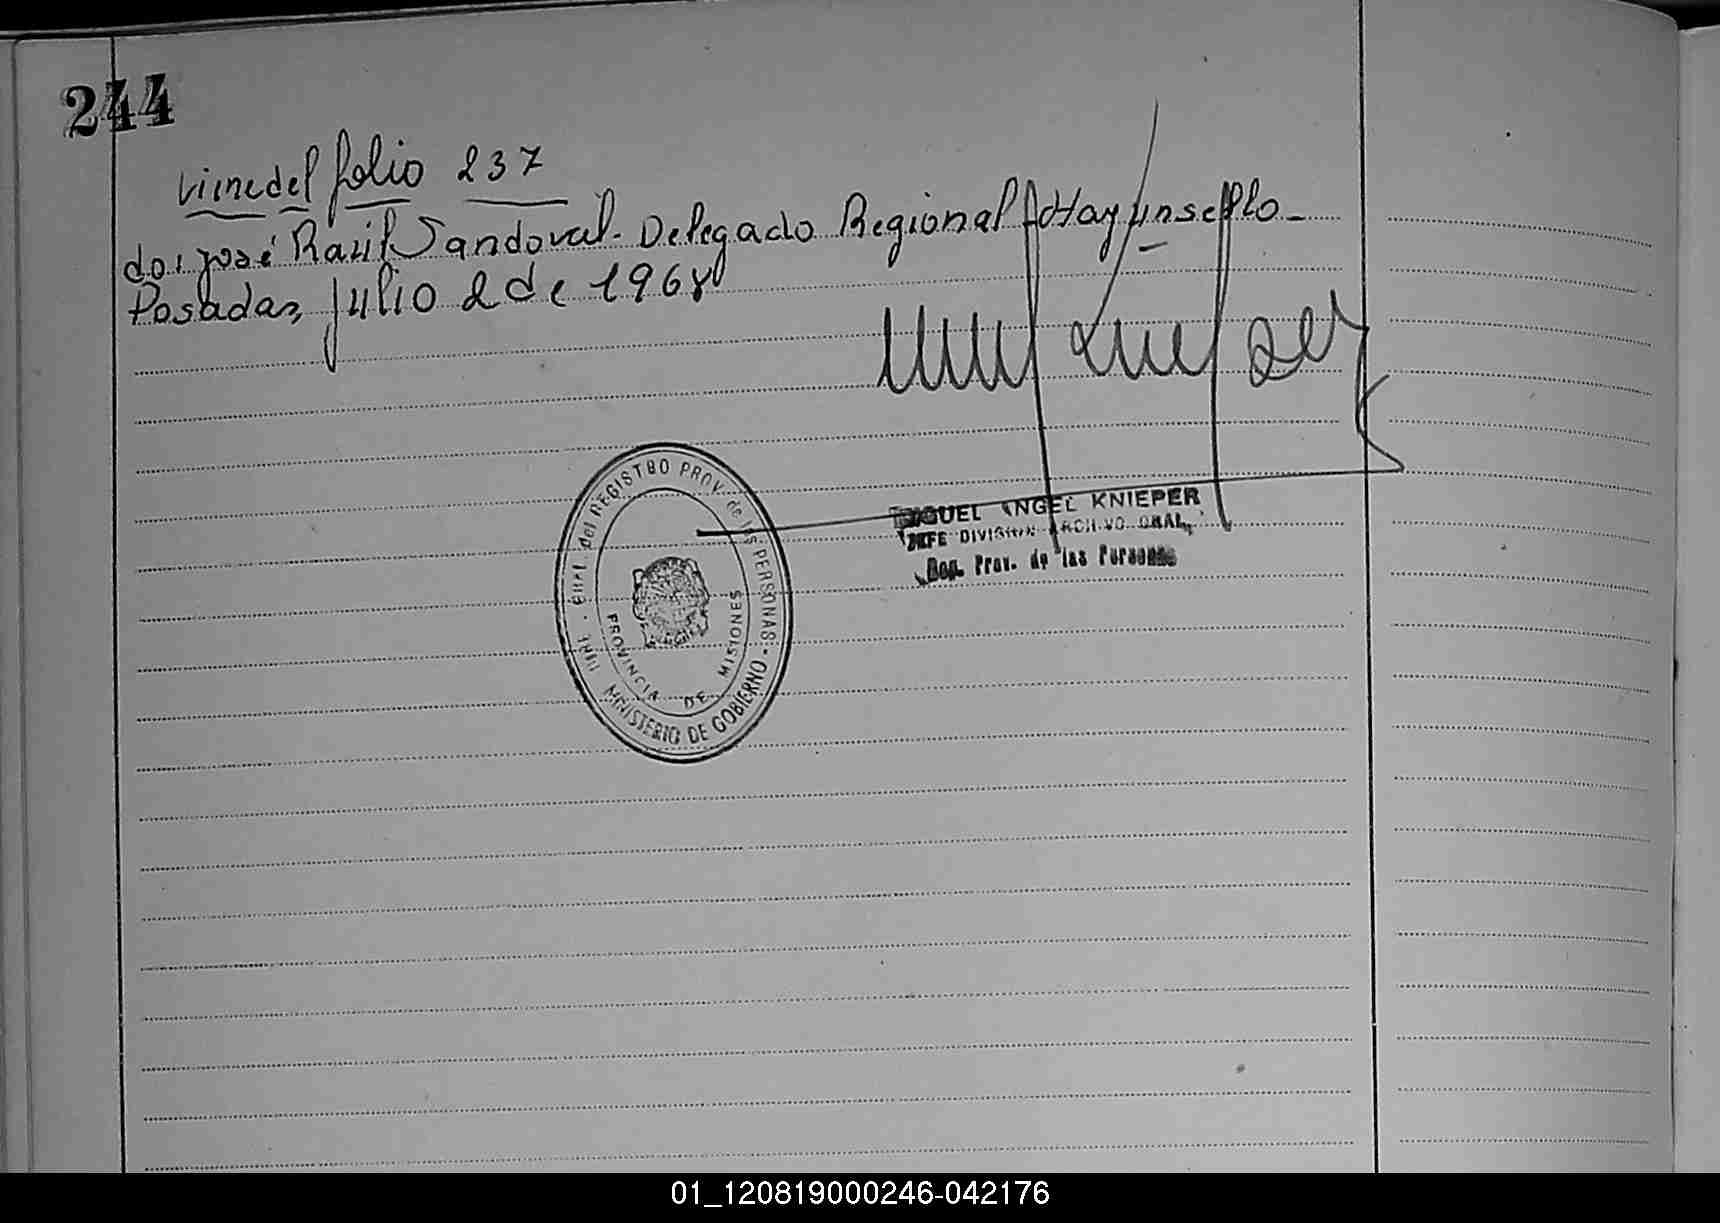 244
viene del folio 237
do: José Raúl Sandoval. Delegado Regional Hay un sello-
Posadas, Julio 2 de 1968
MIGUEL ANGEL KNIEPER
JEFE DIVISION ARCHIVO GRAL.
Prov. de las Personas
del REGISTRO PROV. de las PERSONAS
MINISTERIO DE GOBIERNO
PROVINCIA DE MISIONES
01_120819000246-042176